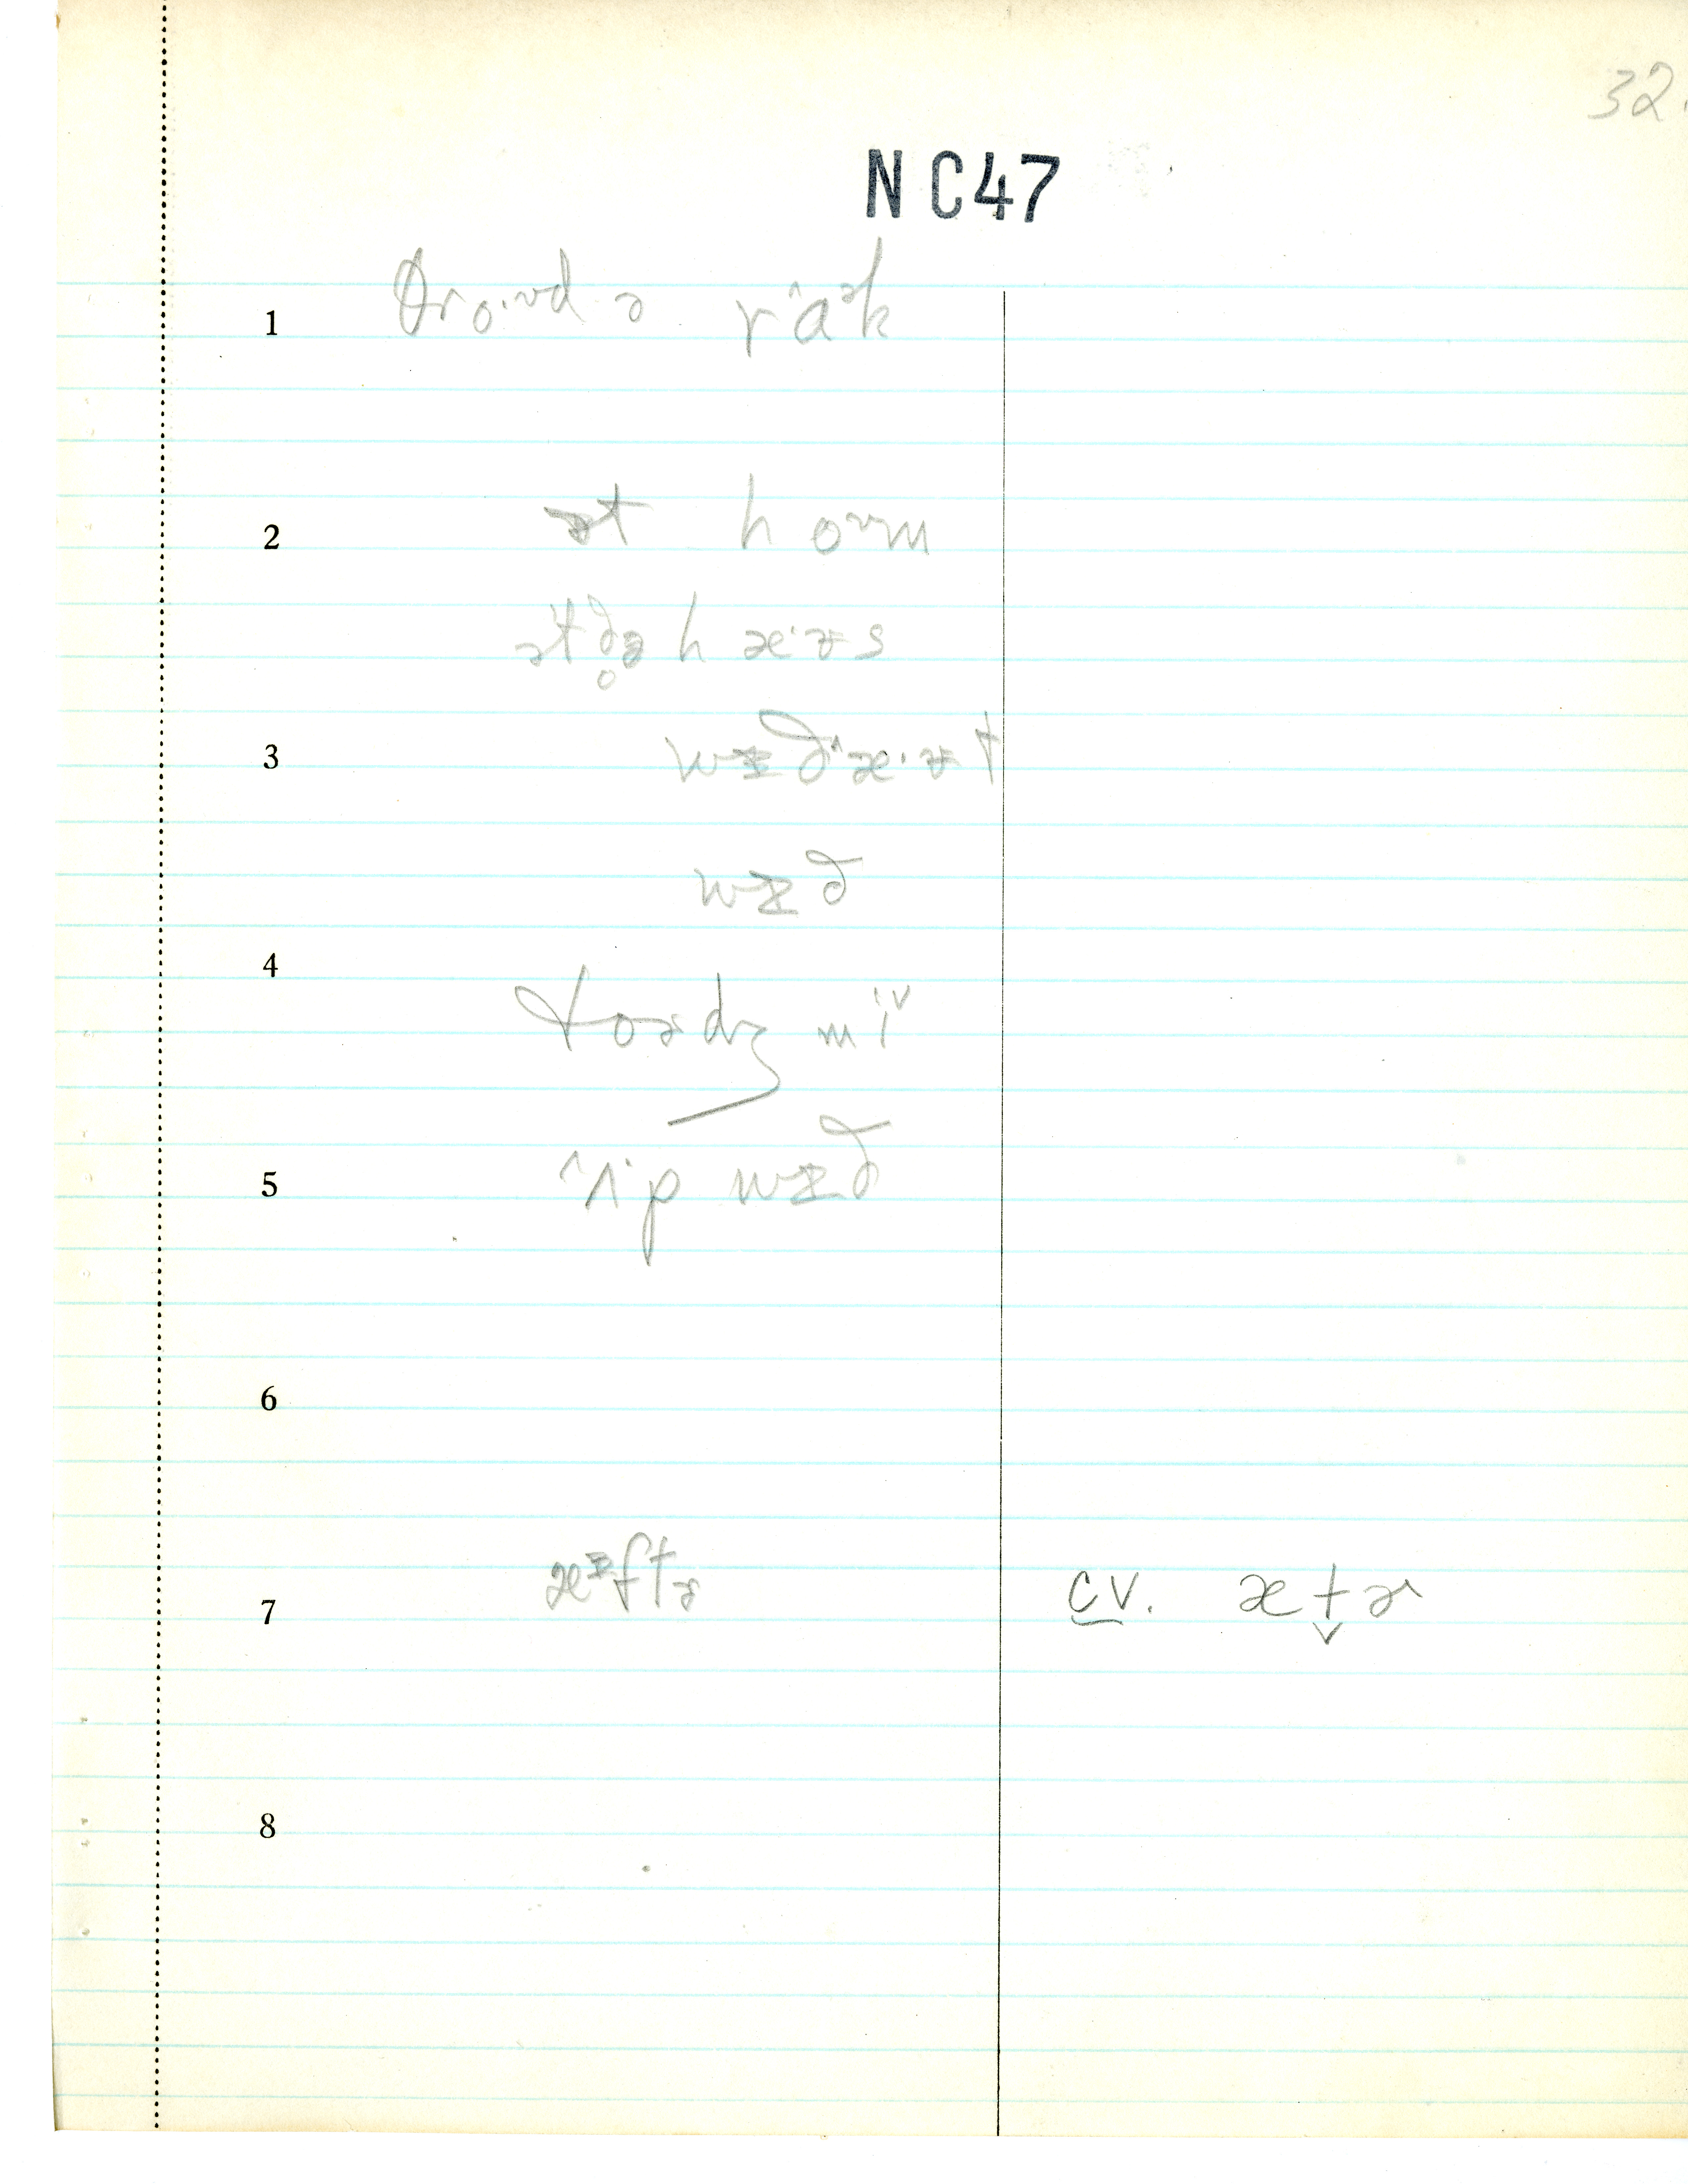 32.
NC47
1 θro·ᴜd ə rɑ^ək
2 ət hoᴜm
ət ð̥ə hæ·ᵾs
3 wɪð^æ·ᵾt
wɪð
4 toədz mi^v
5 ^ʌ·p wɪð
6
7 æᵻftɚ cv. æt̬ɚ
8